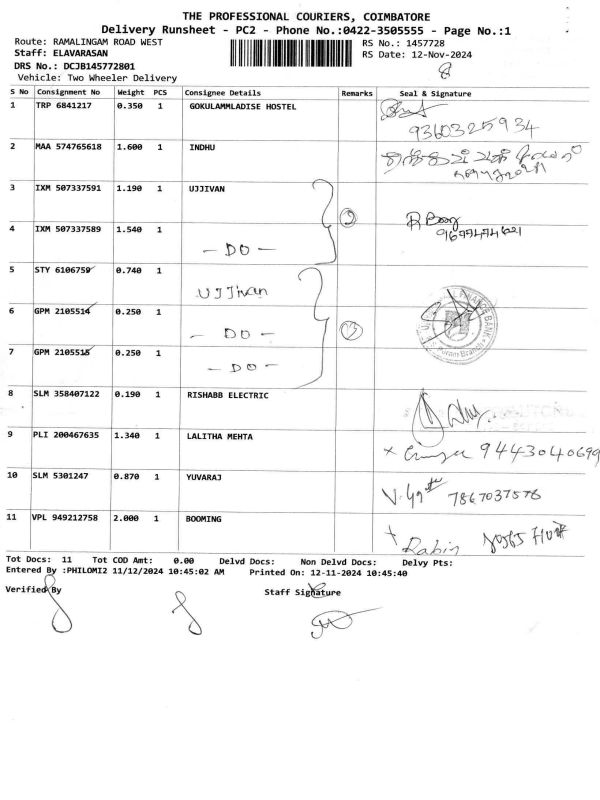 THE PROFESSIONAL COURIERS, COIMBATORE
Delivery Runsheet - PC2 - Phone No.:0422-3505555 - Page No.:1
Route: RAMALINGAM ROAD WEST RS No.: 1457728
Staff: ELAVARASAN RS Date: 12-Nov-2024
DRS No.: DCJB145772801
Vehicle: Two Wheeler Delivery 8
S No Consignment No Weight PCS Consignee Details Remarks Seal & Signature
1 TRP 6841217 0.350 1 GOKULAMMLADISE HOSTEL
9360325934
2 MAA 574765618 1.600 1 INDHU
3 IXM 507337591 1.190 1 UJJIVAN
4 IXM 507337589 1.540 1
- DO -
5 STY 6106759 0.740 1
UJJivan
6 GPM 2105514 0.250 1
- DO -
7 GPM 2105515 0.250 1
- DO -
8 SLM 358407122 0.190 1 RISHABB ELECTRIC
9 PLI 200467635 1.340 1 LALITHA MEHTA
9443040699
10 SLM 5301247 0.870 1 YUVARAJ
7867037576
11 VPL 949212758 2.000 1 BOOMING
Rabin
Tot Docs: 11 Tot COD Amt: 0.00 Delvd Docs: Non Delvd Docs: Delvy Pts:
Entered By :PHILOMI2 11/12/2024 10:45:02 AM Printed On: 12-11-2024 10:45:40
Verified By Staff Signature